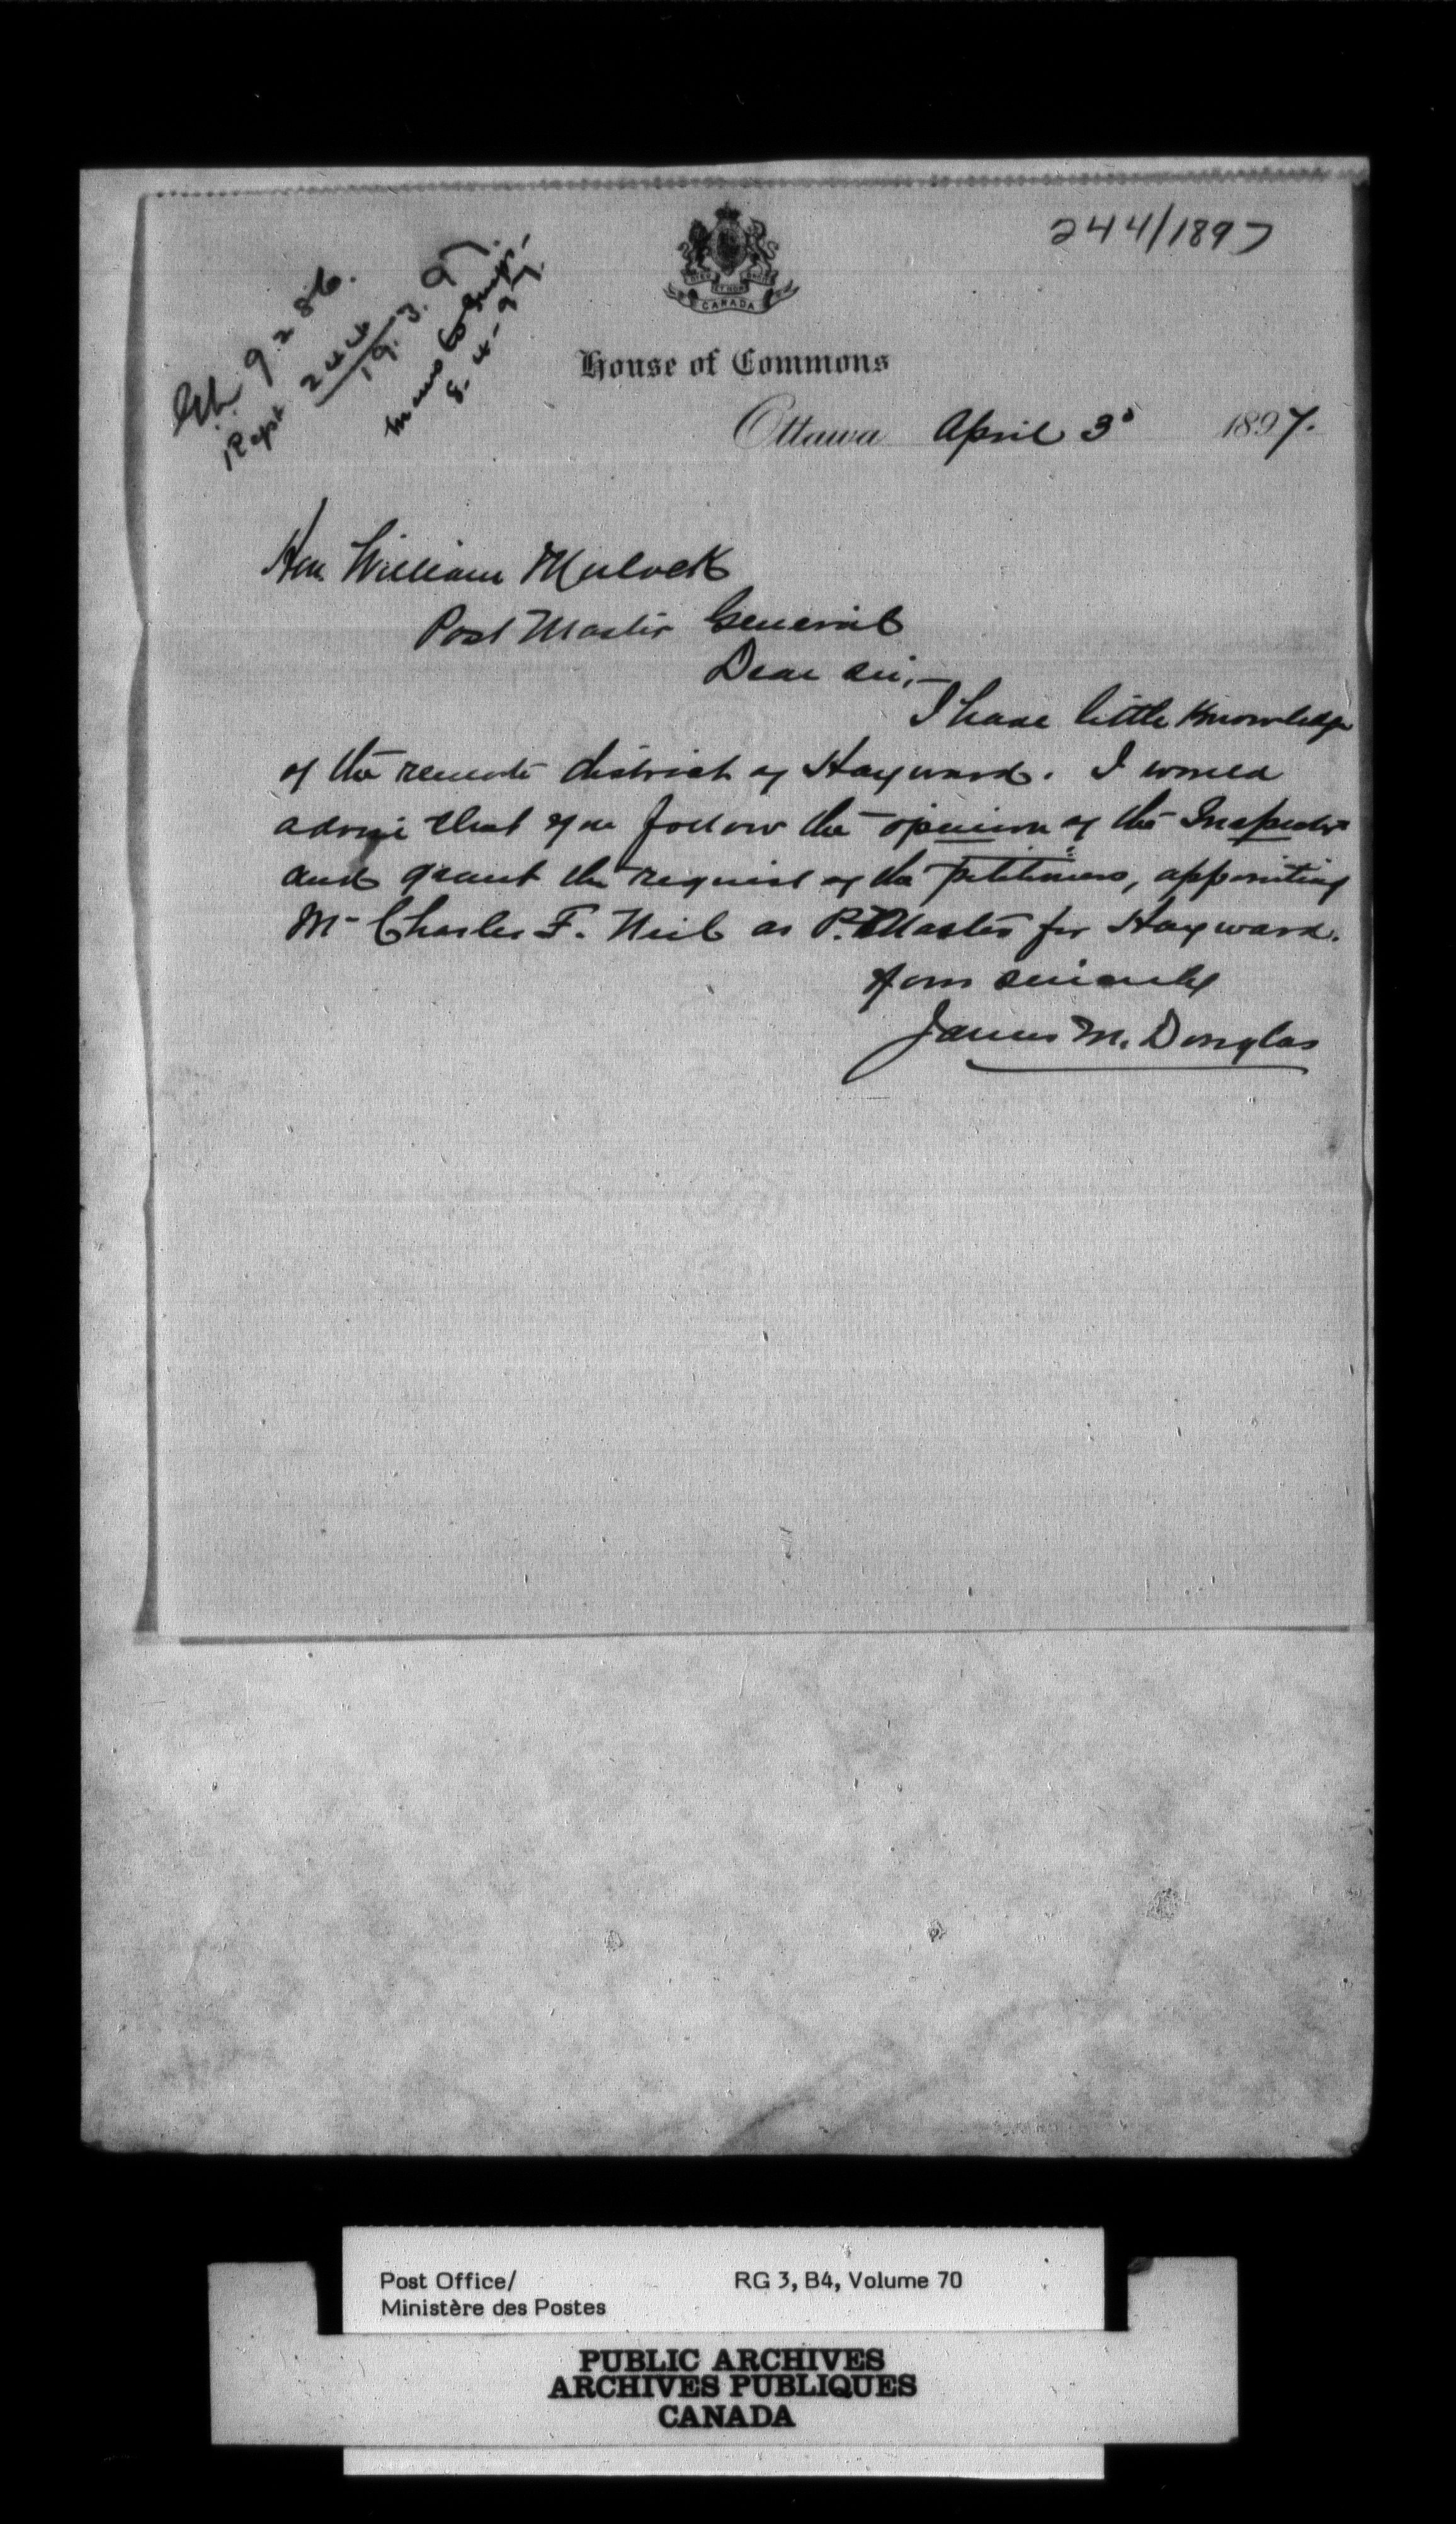 244/1897
9.286.
Rept 244
19.3.97
Memo to Insp.
8.4.97.
CANADA
House of Commons
Ottawa April 3d 1897.
Hon William Mulock
Post Master General
Dear Sir,—
I have little knowledge
of the remote district of Hayward. I would
advise that you follow the opinion of the Inspector
and grant the request of the petitioners, appointing
Mr Charles F. Neil as P. Master for Hayward.
Yours sincerely
James M. Douglas
Post Office/ RG 3, B4, Volume 70
Ministère des Postes
PUBLIC ARCHIVES
ARCHIVES PUBLIQUES
CANADA